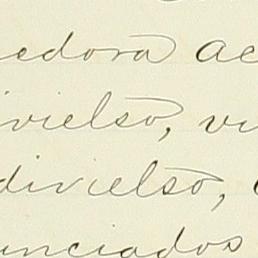 edora ac
ivielso, vi
divielso,
unciados